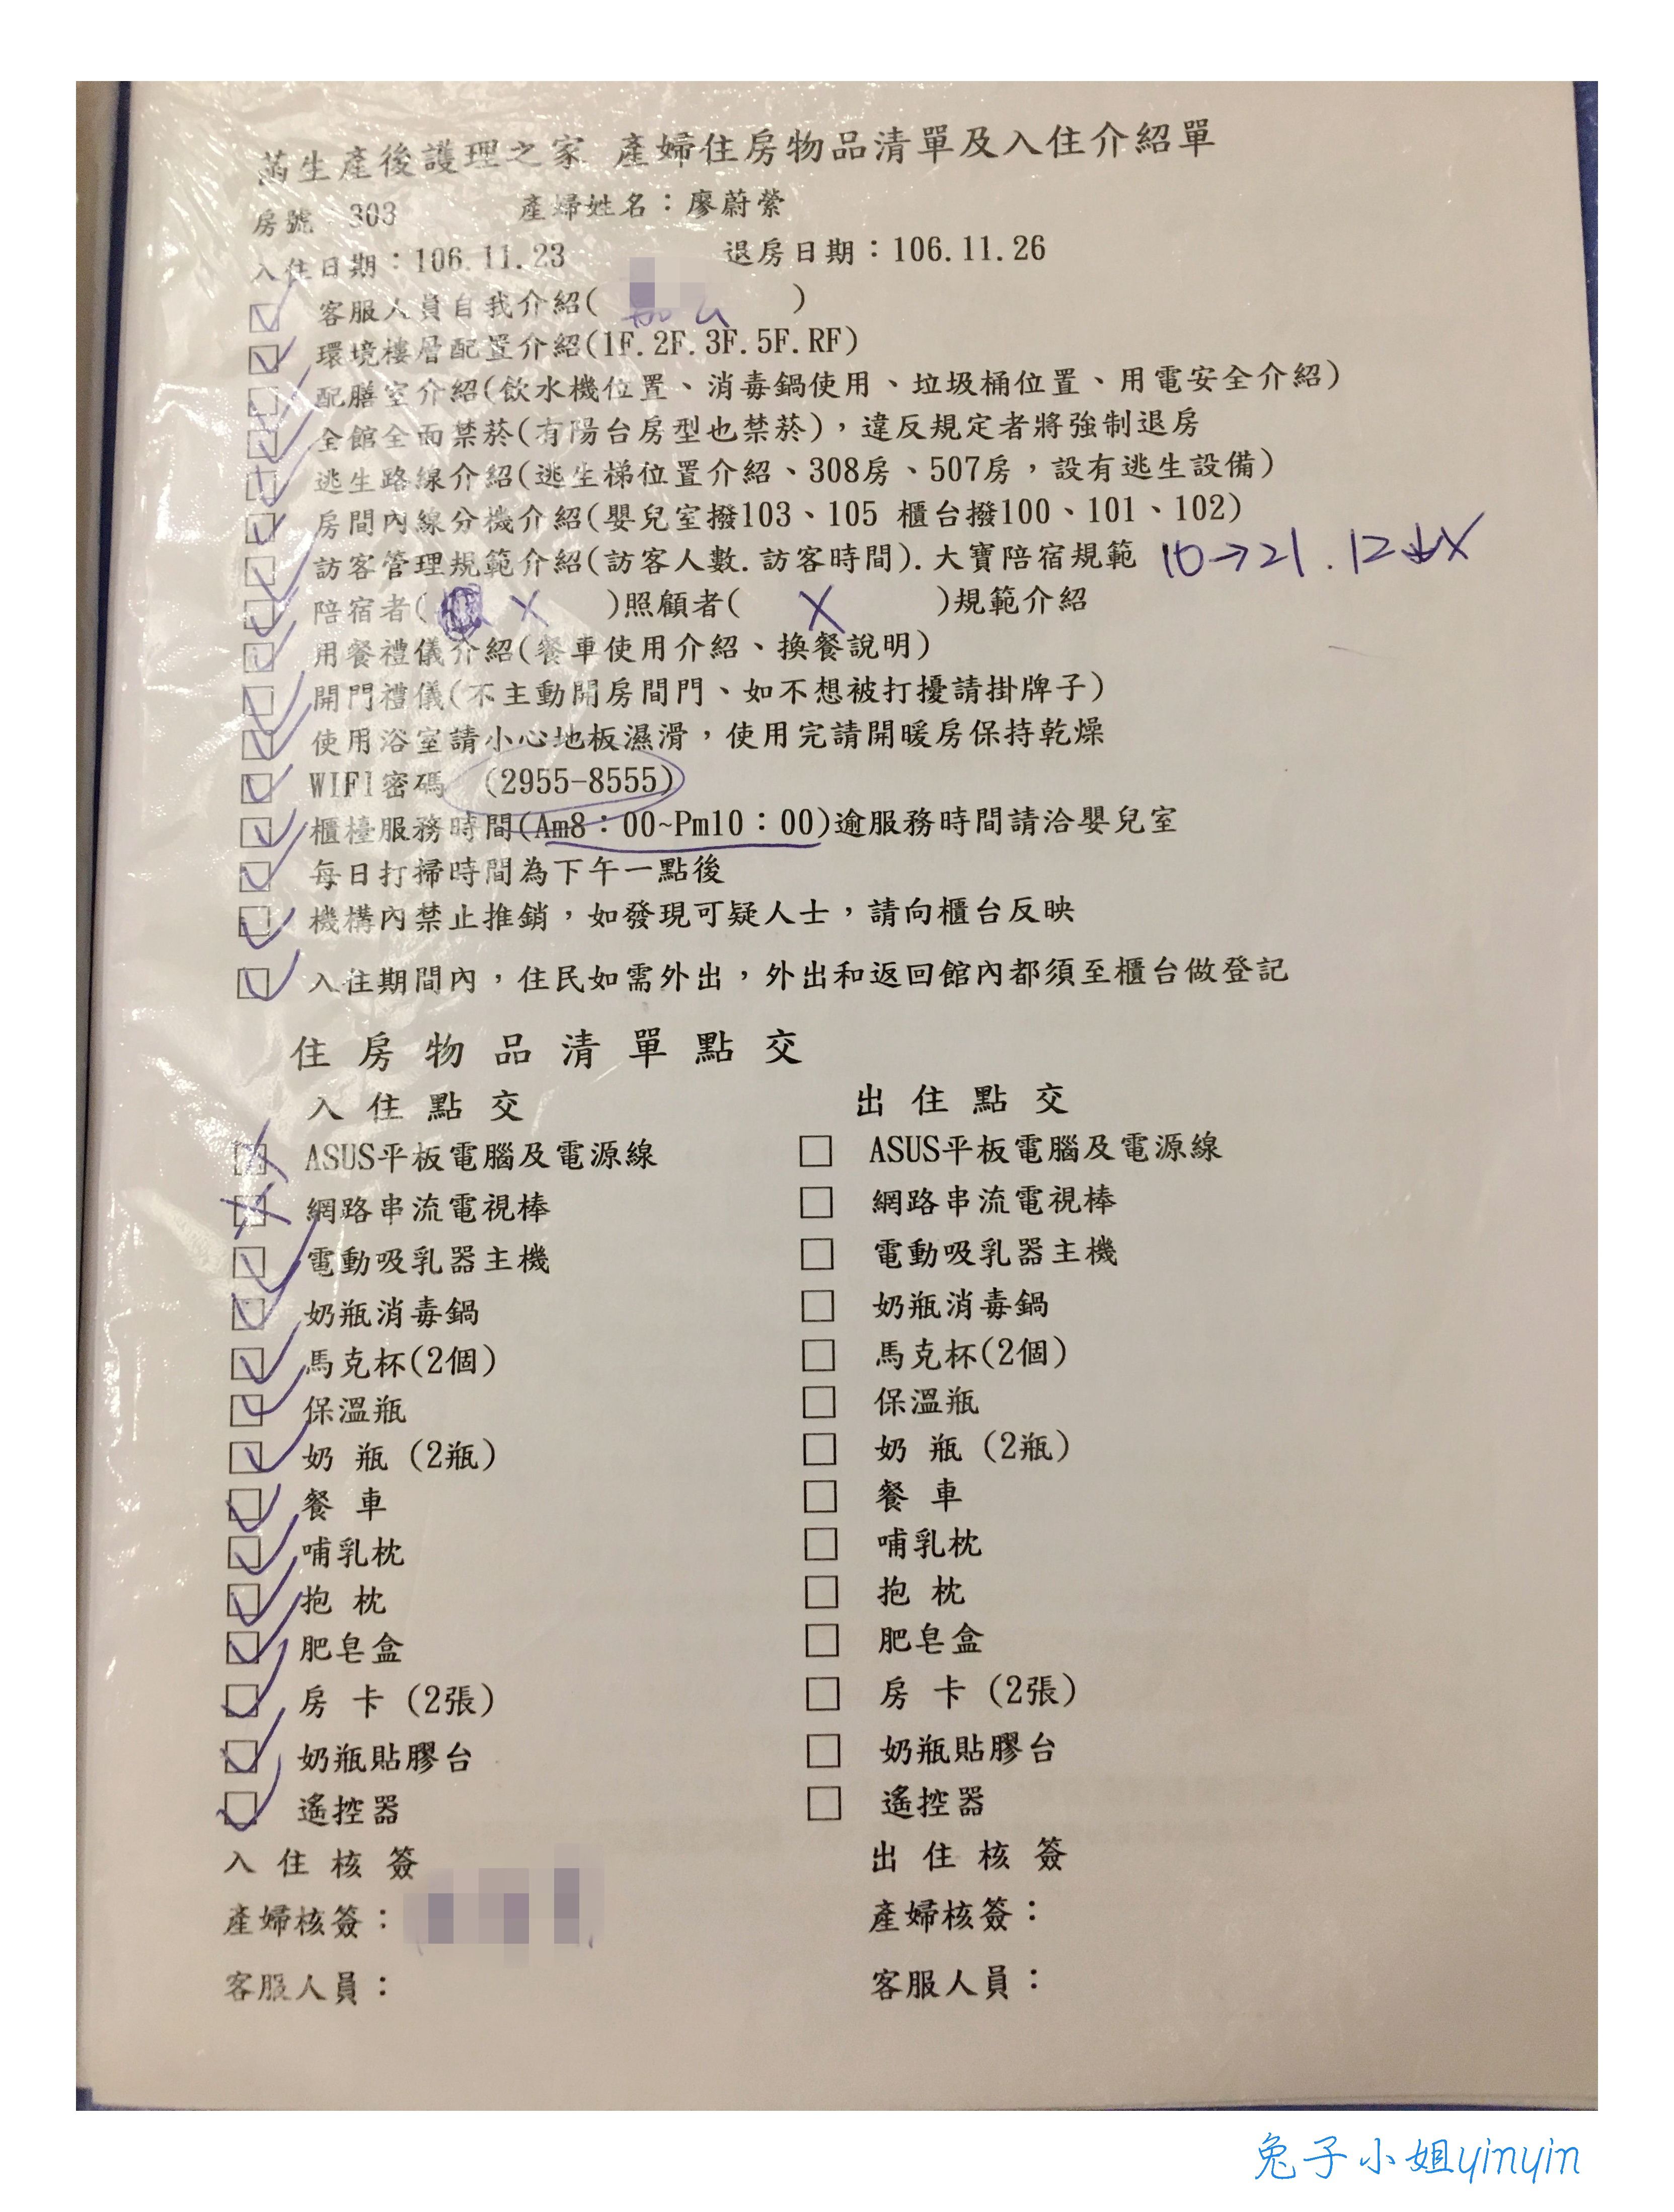 菡生產後護理之家 產婦住房物品清單及入住介紹單
房號 303 產婦姓名：廖蔚縈
入住日期：106.11.23 退房日期：106.11.26
客服人員自我介紹( )
環境樓層配置介紹(1F.2F.3F.5F.RF)
配膳室介紹(飲水機位置、消毒鍋使用、垃圾桶位置、用電安全介紹)
全館全面禁菸(有陽台房型也禁菸)，違反規定者將強制退房
逃生路線介紹(逃生梯位置介紹、308房、507房，設有逃生設備)
房間內線分機介紹(嬰兒室撥103、105 櫃台撥100、101、102)
訪客管理規範介紹(訪客人數.訪客時間).大寶陪宿規範 10→21.12↓X
陪宿者( X )照顧者( X )規範介紹
用餐禮儀介紹(餐車使用介紹、換餐說明)
開門禮儀(不主動開房間門、如不想被打擾請掛牌子)
使用浴室請小心地板濕滑，使用完請開暖房保持乾燥
WIFI密碼 (2955-8555)
櫃檯服務時間(Am8：00~Pm10：00)逾服務時間請洽嬰兒室
每日打掃時間為下午一點後
機構內禁止推銷，如發現可疑人士，請向櫃台反映
入住期間內，住民如需外出，外出和返回館內都須至櫃台做登記
住房物品清單點交
入住點交 出住點交
ASUS平板電腦及電源線 ASUS平板電腦及電源線
網路串流電視棒 網路串流電視棒
電動吸乳器主機 電動吸乳器主機
奶瓶消毒鍋 奶瓶消毒鍋
馬克杯(2個) 馬克杯(2個)
保溫瓶 保溫瓶
奶 瓶 (2瓶) 奶 瓶 (2瓶)
餐 車 餐 車
哺乳枕 哺乳枕
抱 枕 抱 枕
肥皂盒 肥皂盒
房 卡 (2張) 房 卡 (2張)
奶瓶貼膠台 奶瓶貼膠台
遙控器 遙控器
入住核簽 出住核簽
產婦核簽： 產婦核簽：
客服人員： 客服人員：
兔子小姐yinyin